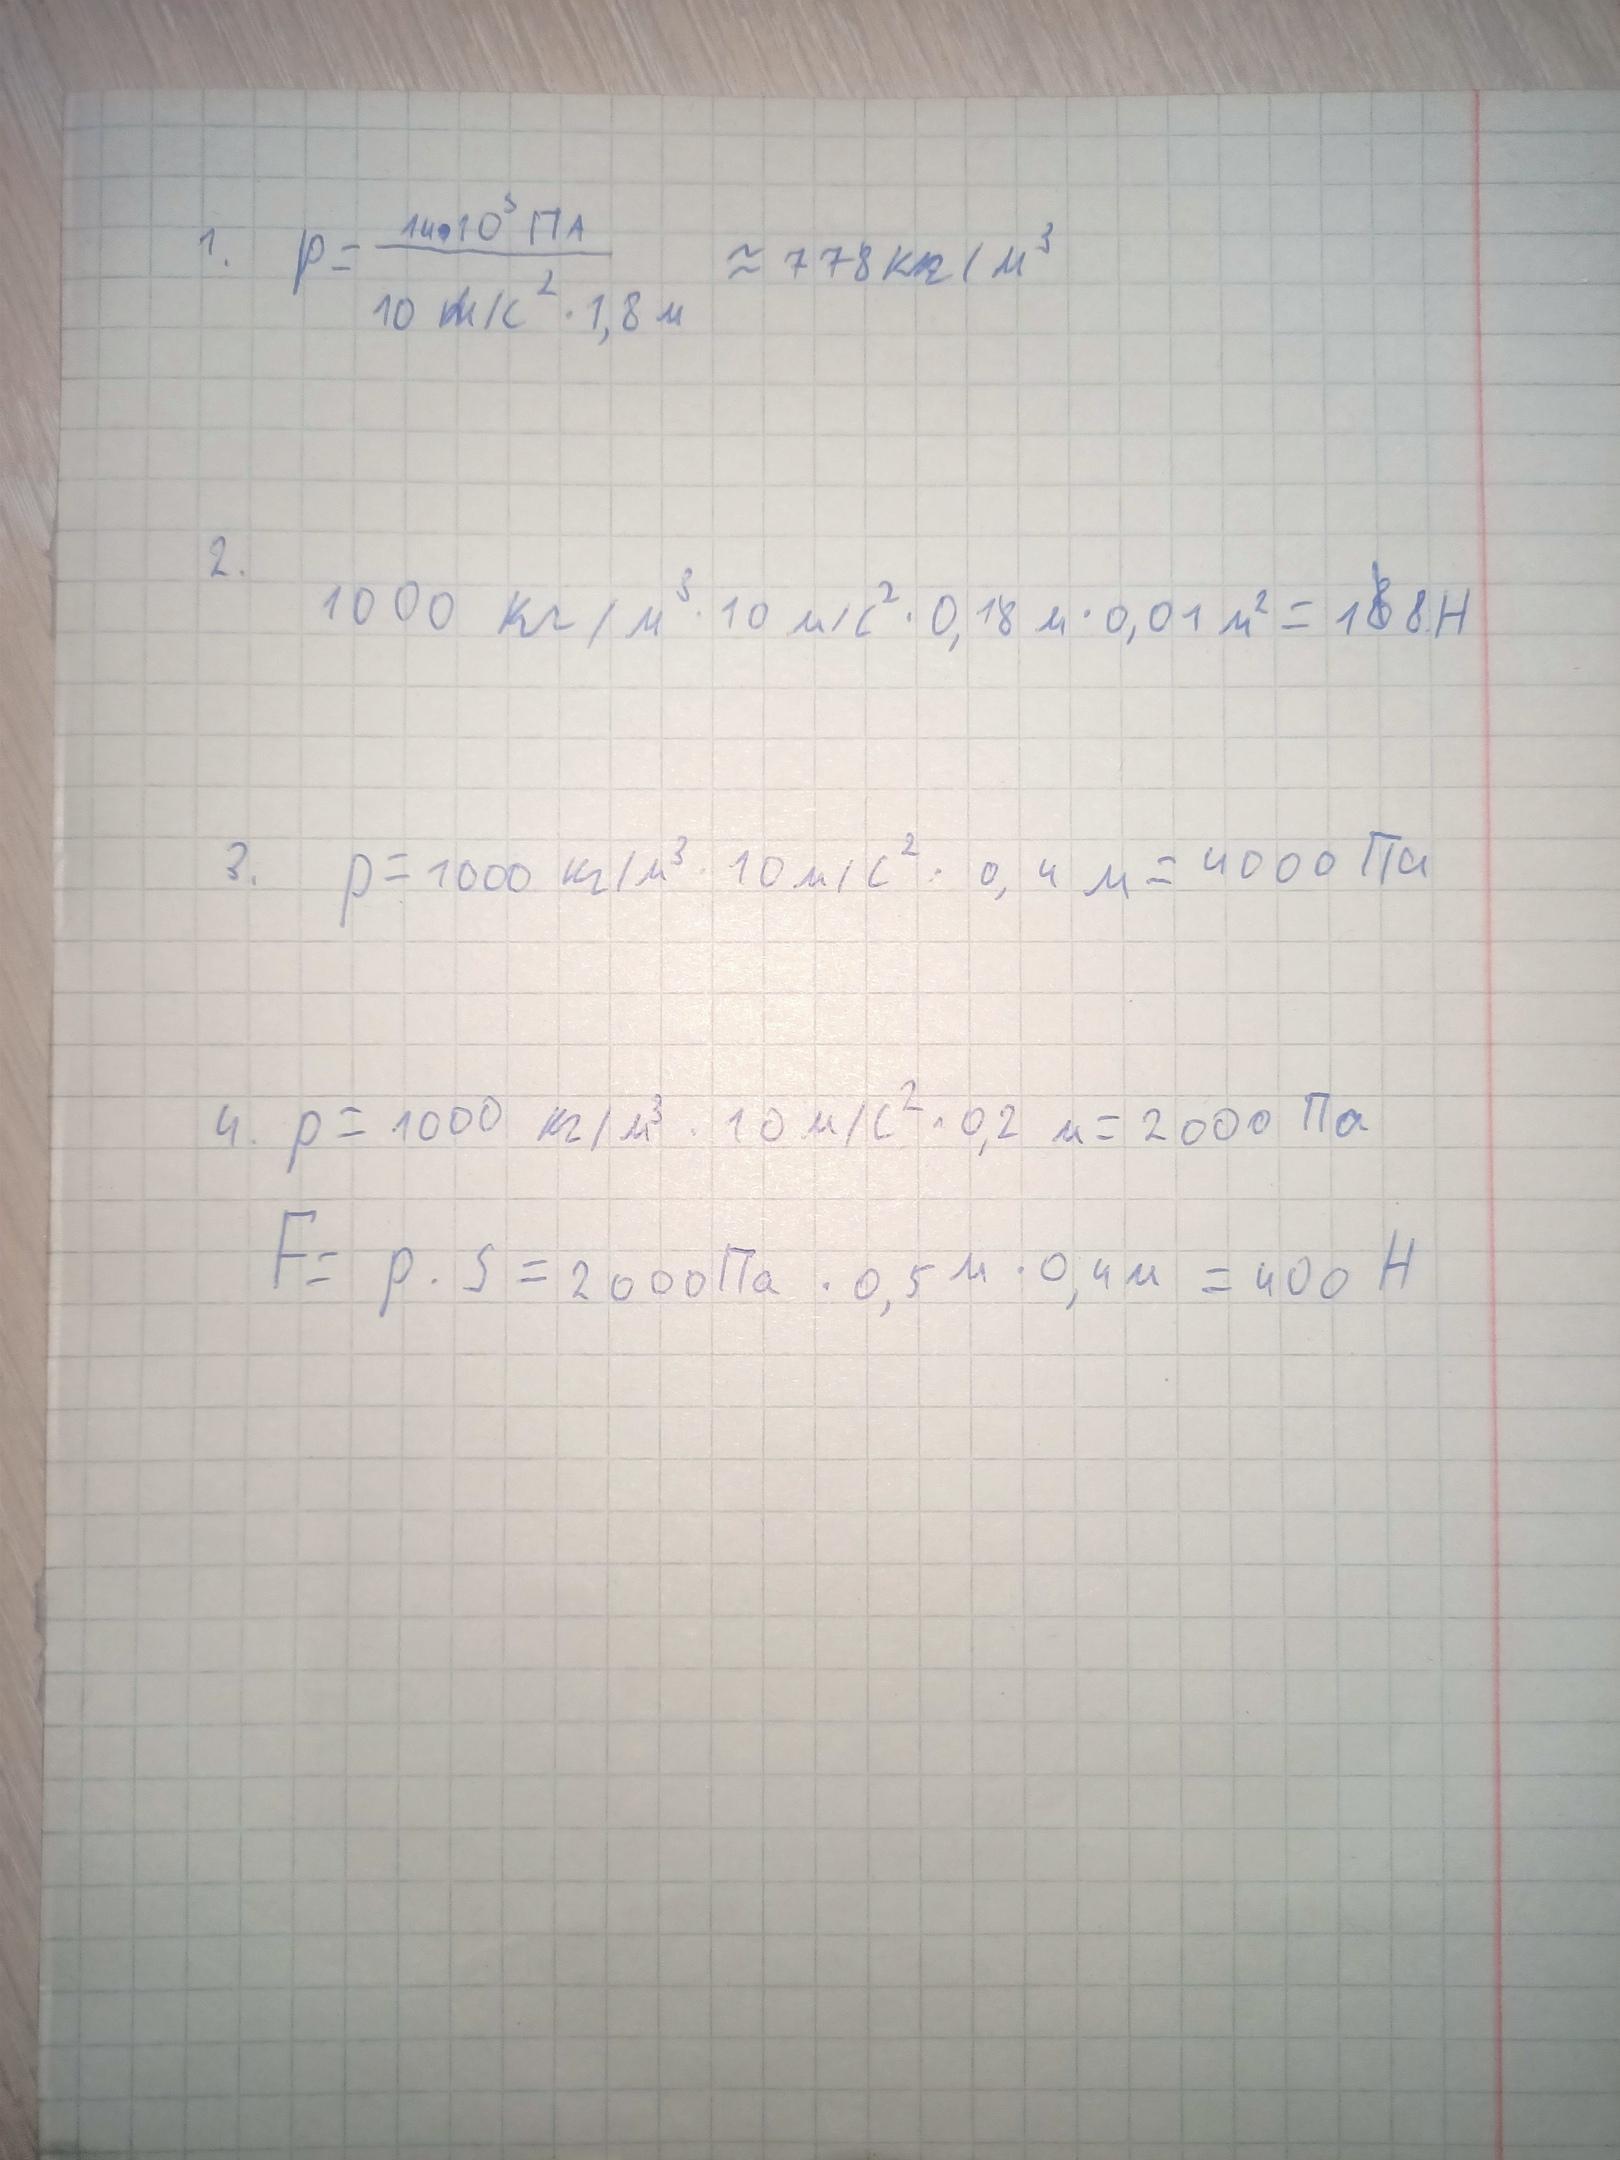 1. p = 14·10³ ПА / 10 м/с² · 1,8 м ≈ 778 кг/м³
2.
1000 кг/м³ · 10 м/с² · 0,18 м · 0,01 м² = 188 Н
3. p = 1000 кг/м³ · 10 м/с² · 0,4 м = 4000 Па
4. p = 1000 кг/м³ · 10 м/с² · 0,2 м = 2000 Па
F = p · S = 2000 Па · 0,5 м · 0,4 м = 400 Н